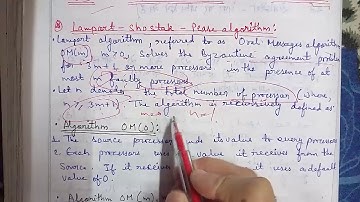 Lamport - Shostak - Pease algorithm:
Lamport algorithm, referred to as Oral Messages algorithm
OM(m) m>0, Solves the Byzantine agreement problem
for 3m+1 or more processors in the presence of at
most m faulty processors.
Let n denotes the total number of processor (where,
n≥, 3m+1). The algorithm is recursively defined as:
m=0 n=1
Algorithm OM(0):
1. The source processor its value to every processor
2. Each processors uses value it receives from the
Source. If it receives it uses a default
value of 0.
Algorithm OM(m)